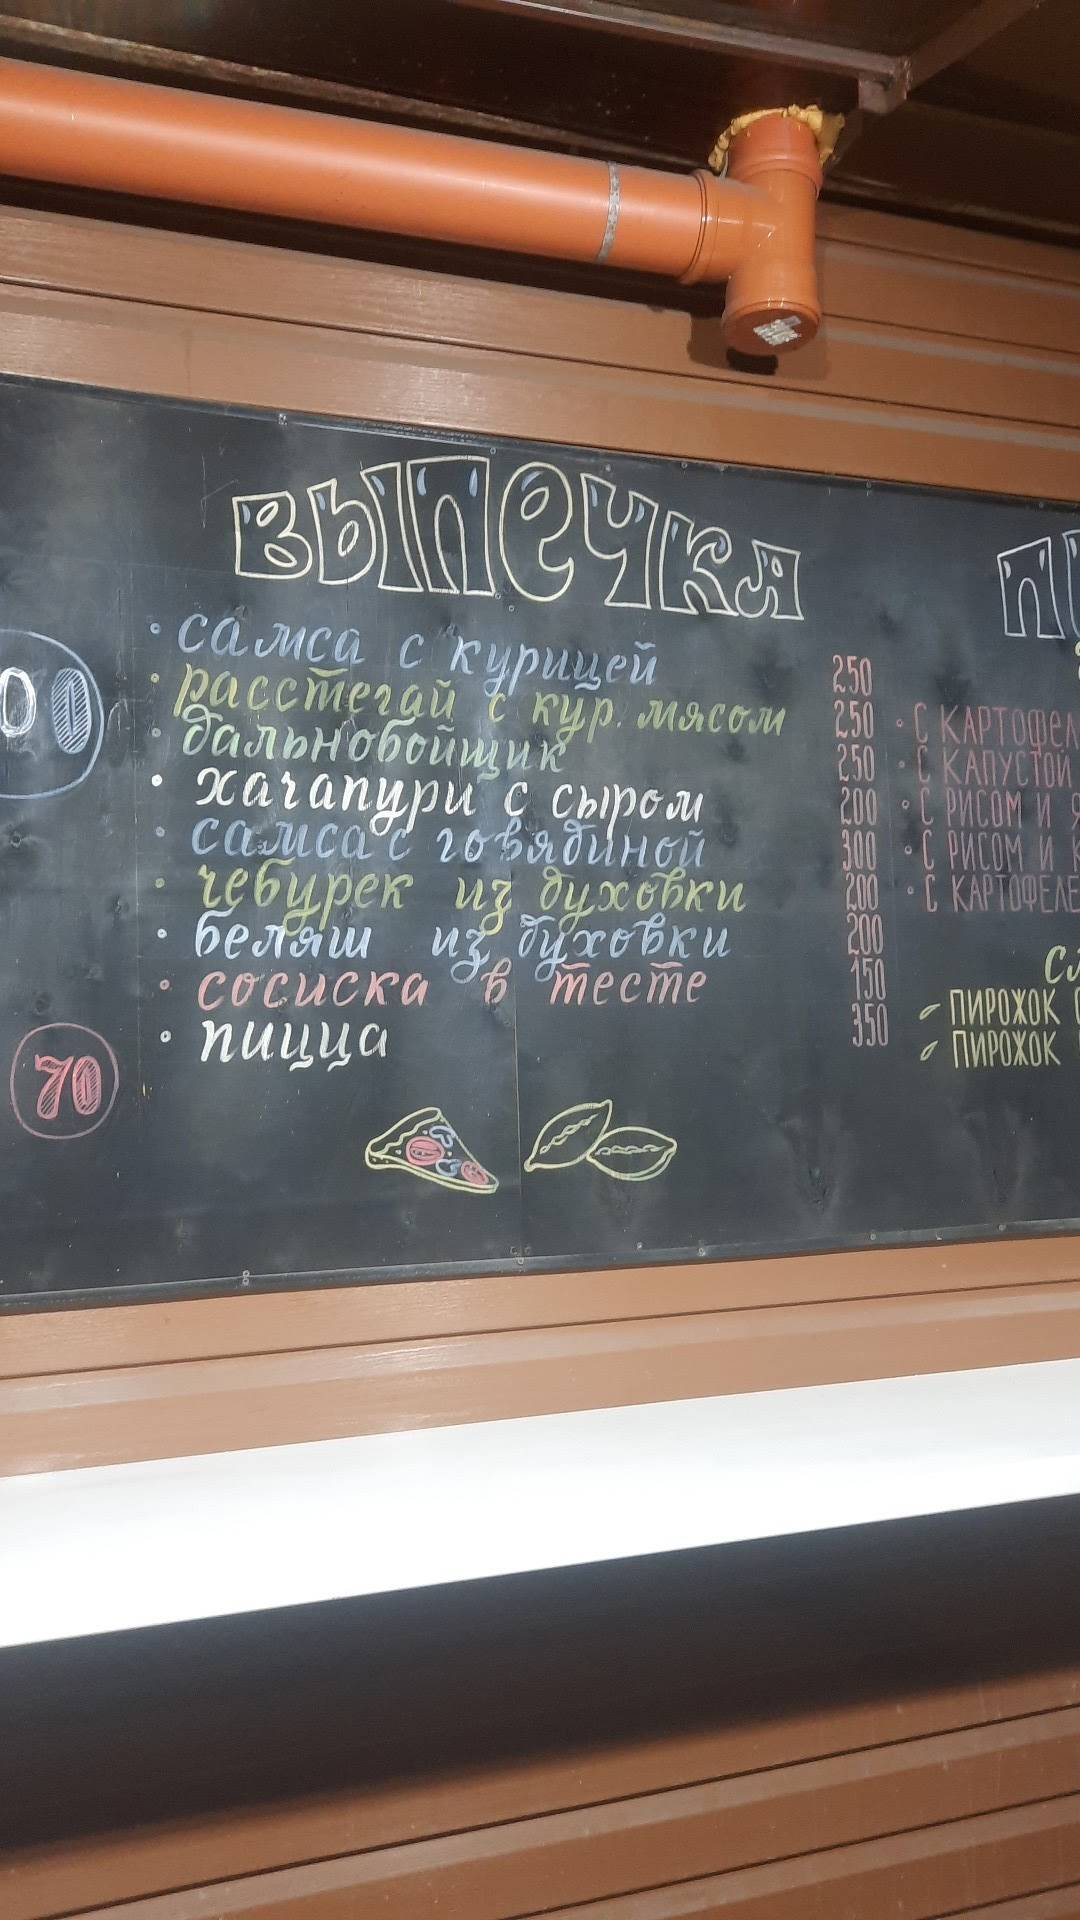 ВЫПЕЧКА
• самса с курицей 250
• расстегай с кур. мясом 250
• дальнобойщик 250
• хачапури с сыром 200
• самса с говядиной 300
• чебурек из духовки 200
• беляш из духовки 200
• сосиска в тесте 150
• пицца 350
00
70
• С КАРТОФЕЛ
• С КАПУСТОЙ
• С РИСОМ И Я
• С РИСОМ И К
• С КАРТОФЕЛЕ
ПИРОЖОК
ПИРОЖОК